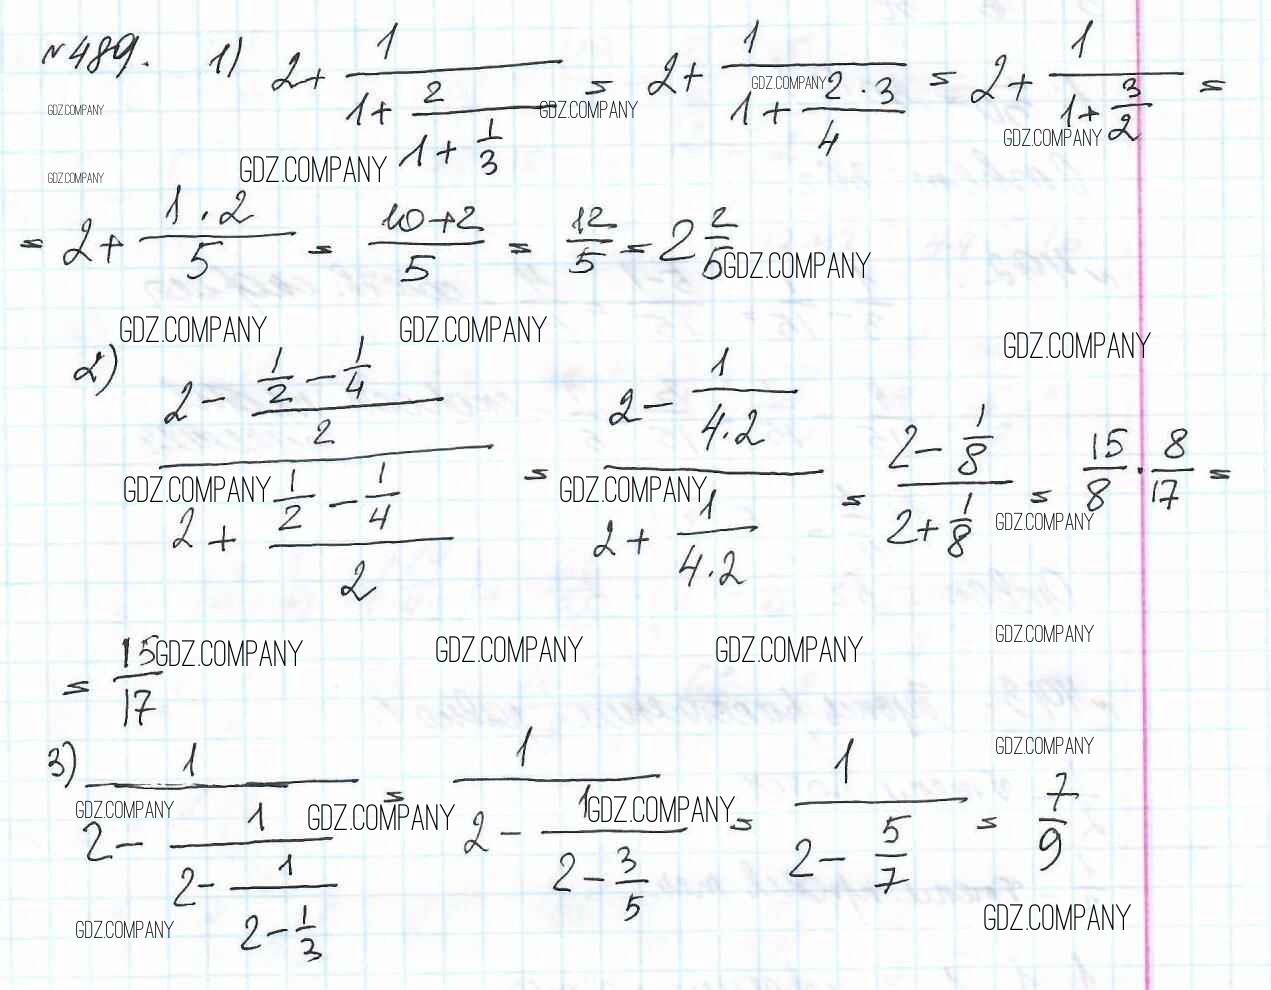 №489. 1) 2 + 1/(1 + 2/(1 + 1/3)) = 2 + 1/(1 + 2·3/4) = 2 + 1/(1 + 3/2) =
GDZ.COMPANY GDZ.COMPANY GDZ.COMPANY GDZ.COMPANY
GDZ.COMPANY GDZ.COMPANY
= 2 + 1·2/5 = 10+2/5 = 12/5 = 2 2/5
GDZ.COMPANY
GDZ.COMPANY GDZ.COMPANY GDZ.COMPANY
2) (2 - (1/2 - 1/4)/2)/(2 + (1/2 - 1/4)/2) = (2 - 1/(4·2))/(2 + 1/(4·2)) = (2 - 1/8)/(2 + 1/8) = 15/8 · 8/17 =
GDZ.COMPANY GDZ.COMPANY GDZ.COMPANY
= 15/17
GDZ.COMPANY GDZ.COMPANY GDZ.COMPANY GDZ.COMPANY
3) 1/(2 - 1/(2 - 1/(2 - 1/3))) = 1/(2 - 1/(2 - 3/5)) = 1/(2 - 5/7) = 7/9
GDZ.COMPANY
GDZ.COMPANY GDZ.COMPANY GDZ.COMPANY
GDZ.COMPANY GDZ.COMPANY